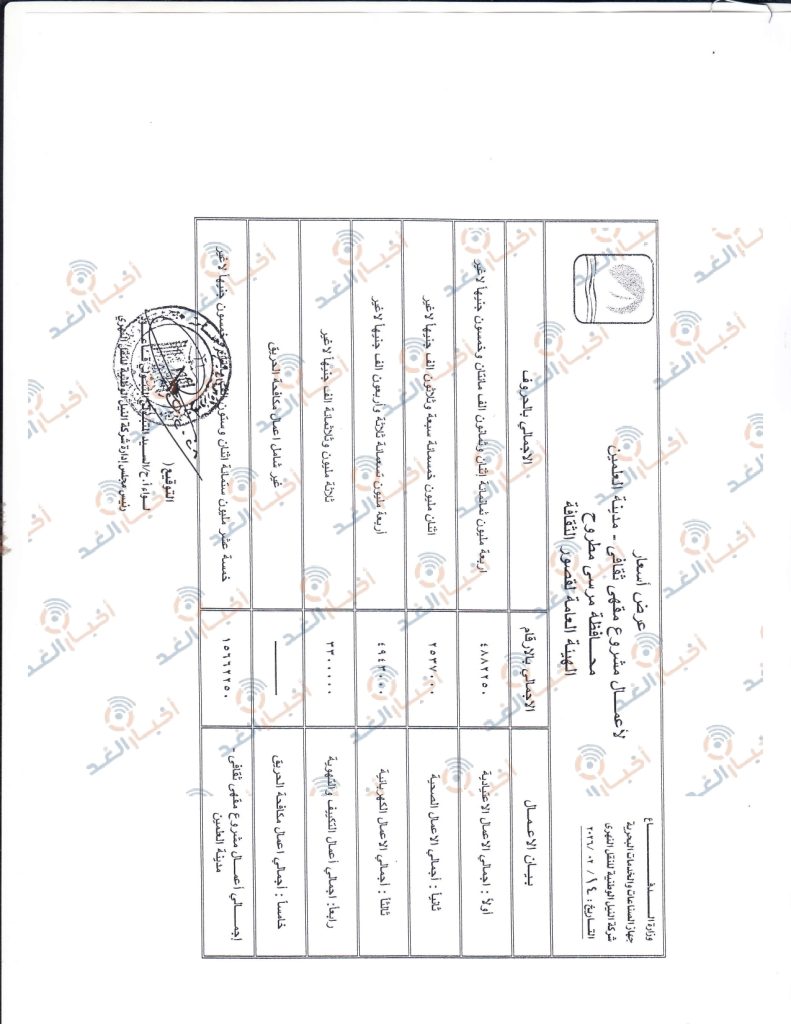 وزارة الـــدفـــــــاع
جهاز الصناعات والخدمات البحرية
شركة النيل الوطنية للنقل النهرى
التــاريخ : ١٤ / ٠٢ /٢٠٢٦
عرض أسعار
لأعمـــال مشروع مقهى ثقافى - مدينة العلمين
محـــافظة مرسى مطروح
الهيئة العامة لقصور الثقافة
بيـــان الاعـمـــال
الاجمالي بالارقام
الاجمالي بالحروف
أولاً : اجمالي الاعمال الاعتيادية
٤٨٨٢٢٥٠
اربعة مليون ثمانمائة اثنان وثمانون الف مائتان وخمسون جنيهاً لاغير
ثانياً : أجمالي الاعمال الصحية
٢٥٣٧٠٠٠
اثنان مليون خمسمائة سبعة وثلاثون الف جنيهاً لاغير
ثالثاً : أجمالي الاعمال الكهربائية
٤٩٤٣٠٠٠
اربعة مليون تسعمائة ثلاثة واربعون الف جنيهاً لاغير
رابعاً: اجمالي أعمال التكييف والتهوية
٣٣٠٠٠٠٠
ثلاثة مليون وثلاثمائة الف جنيهاً لاغير
خامساً : أجمالي اعمال مكافحة الحريق
غير شامل اعمال مكافحة الحريق
إجمـــالي أعمـــال مشروع مقهى ثقافى -
مدينة العلمين
١٥٦٦٢٢٥٠
خمسة عشر مليون ستمائة اثنان وستون خمسون جنيهاً لاغير
التوقيع(
لـــواء أ.ح/الســـيد
رئيس مجلس إدارة شركة النيل الوطنية للنقل النهري
أخبار الغد